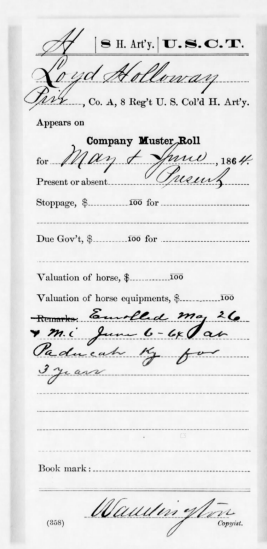 H | 8 H. Art'y. | U.S.C.T.
Loyd Holloway
Priv, Co. A, 8 Reg't U. S. Col'd H. Art'y.
Appears on
Company Muster Roll
for May & June, 1864.
Present or absent Present
Stoppage, $ 100 for
Due Gov't, $ 100 for
Valuation of horse, $ 100
Valuation of horse equipments, $ 100
Remarks: Enrolled May 26
& M.i June 6-64 at
Paducah Ky for
3 years
Book mark:
(358) Copyist.